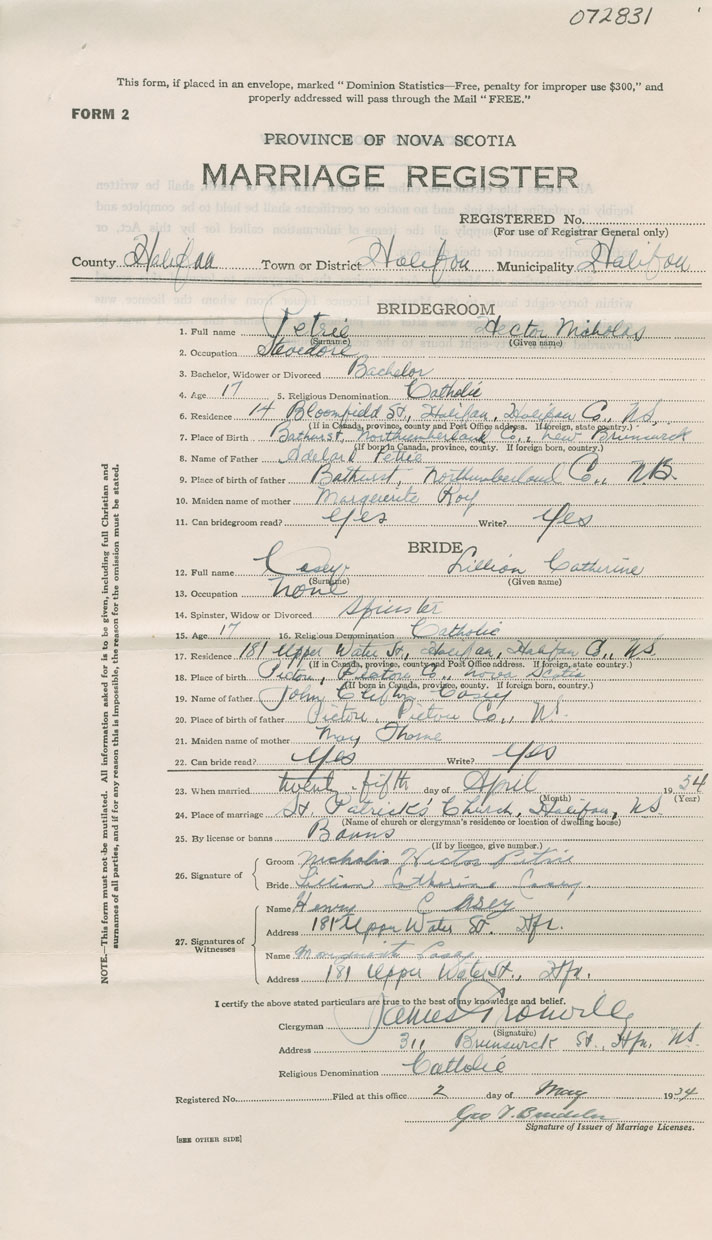 072831
This form, if placed in an envelope, marked "Dominion Statistics—Free, penalty for improper use $300," and
properly addressed will pass through the Mail "FREE."
FORM 2
PROVINCE OF NOVA SCOTIA
MARRIAGE REGISTER
REGISTERED No.
(For use of Registrar General only)
County Halifax Town or District Halifax Municipality Halifax
BRIDEGROOM
1. Full name Petrie Hector Nicholas
(Surname) (Given name)
2. Occupation Stevedore
3. Bachelor, Widower or Divorced Bachelor
4. Age 17 5. Religious Denomination Catholic
6. Residence 14 Bloomfield St., Halifax, Halifax Co., NS.
(If in Canada, province, county and Post Office address. If foreign, state country.)
7. Place of Birth Bathurst, Northumberland Co., New Brunswick
(If born in Canada, province, county. If foreign born, country.)
8. Name of Father Adelard Petrie
9. Place of birth of father Bathurst, Northumberland Co., N.B.
10. Maiden name of mother Marguerite Roy
11. Can bridegroom read? Yes Write? Yes
BRIDE
12. Full name Casey Lillian Catherine
(Surname) (Given name)
13. Occupation none
14. Spinster, Widow or Divorced Spinster
15. Age 17 16. Religious Denomination Catholic
17. Residence 181 Upper Water St., Halifax, Halifax Co., NS.
(If in Canada, province, county and Post Office address. If foreign, state country.)
18. Place of birth Pictou, Pictou Co., Nova Scotia
(If born in Canada, province, county. If foreign born, country.)
19. Name of father John Casey
20. Place of birth of father Pictou, Pictou Co., NS.
21. Maiden name of mother May Thorne
22. Can bride read? Yes Write? Yes
23. When married twenty-fifth day of April 1934
(Month) (Year)
24. Place of marriage St. Patrick's Church, Halifax, NS.
(Name of church or clergyman's residence or location of dwelling house)
25. By license or banns Banns
(If by licence, give number.)
26. Signature of Groom Nicholis Hector Petrie
Bride Lillian Catherine Casey.
27. Signatures of Witnesses Name Henry Casey
Address 181 Upper Water St. Hfx.
Name Marguerite Casey
Address 181 Upper Water St., Hfx.
I certify the above stated particulars are true to the best of my knowledge and belief.
Clergyman James
(Signature)
Address 311 Brunswick St., Hfx. NS.
Religious Denomination Catholic
Registered No. Filed at this office 2 day of May 1934
Geo T.
Signature of Issuer of Marriage Licenses.
[SEE OTHER SIDE]
NOTE.—This form must not be mutilated. All information asked for is to be given, including full Christian and
surnames of all parties, and if for any reason this is impossible, the reason for the omission must be stated.